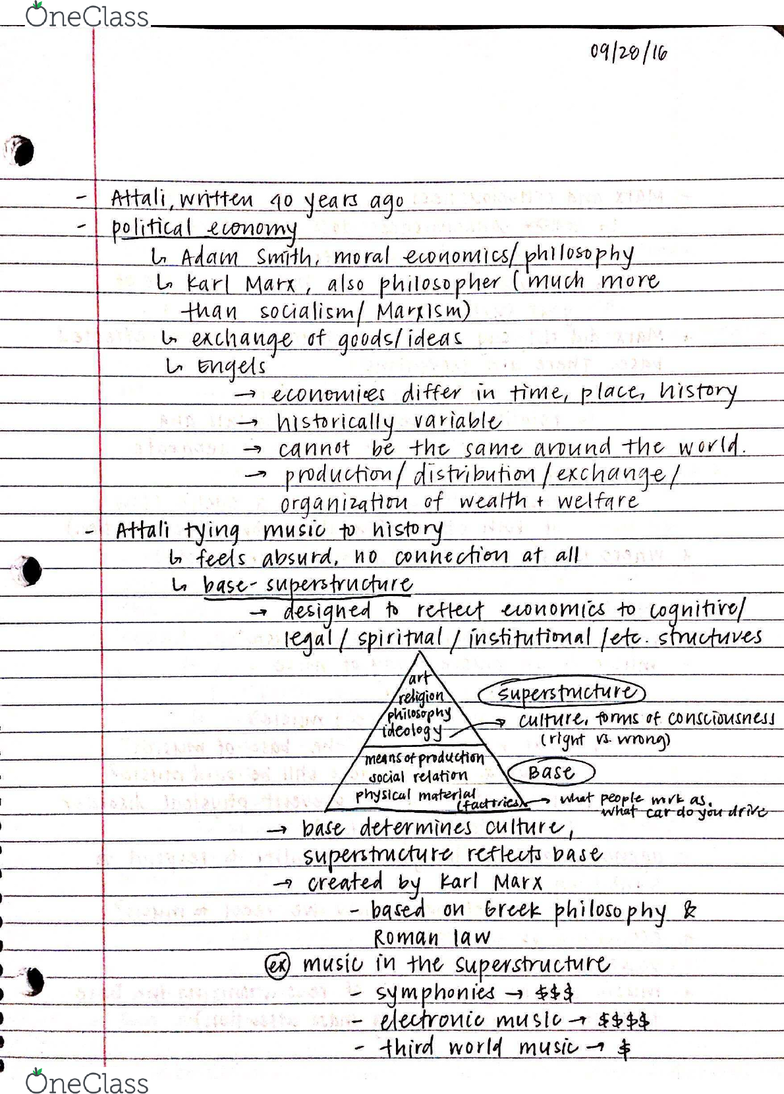 OneClass
09/28/16
- Attali, written 40 years ago
- political economy
↳ Adam Smith, moral economics/philosophy
↳ Karl Marx, also philosopher (much more
than socialism/Marxism)
↳ exchange of goods/ideas
↳ Engels
→ economies differ in time, place, history
→ historically variable
→ cannot be the same around the world.
→ production/distribution/exchange/
organization of wealth + welfare
- Attali tying music to history
↳ feels absurd, no connection at all
↳ base-superstructure
→ designed to reflect economics to cognitive/
legal/spiritual/institutional/etc. structures
art
religion
philosophy
ideology
superstructure
→ culture, forms of consciousness
(right vs. wrong)
means of production
social relation
physical material
(factories)
Base
→ what people work as,
what car do you drive
→ base determines culture,
superstructure reflects base
→ created by Karl Marx
- based on Greek philosophy &
Roman law
ex music in the superstructure
- symphonies → $$$
- electronic music → $$$$
- third world music → $
OneClass